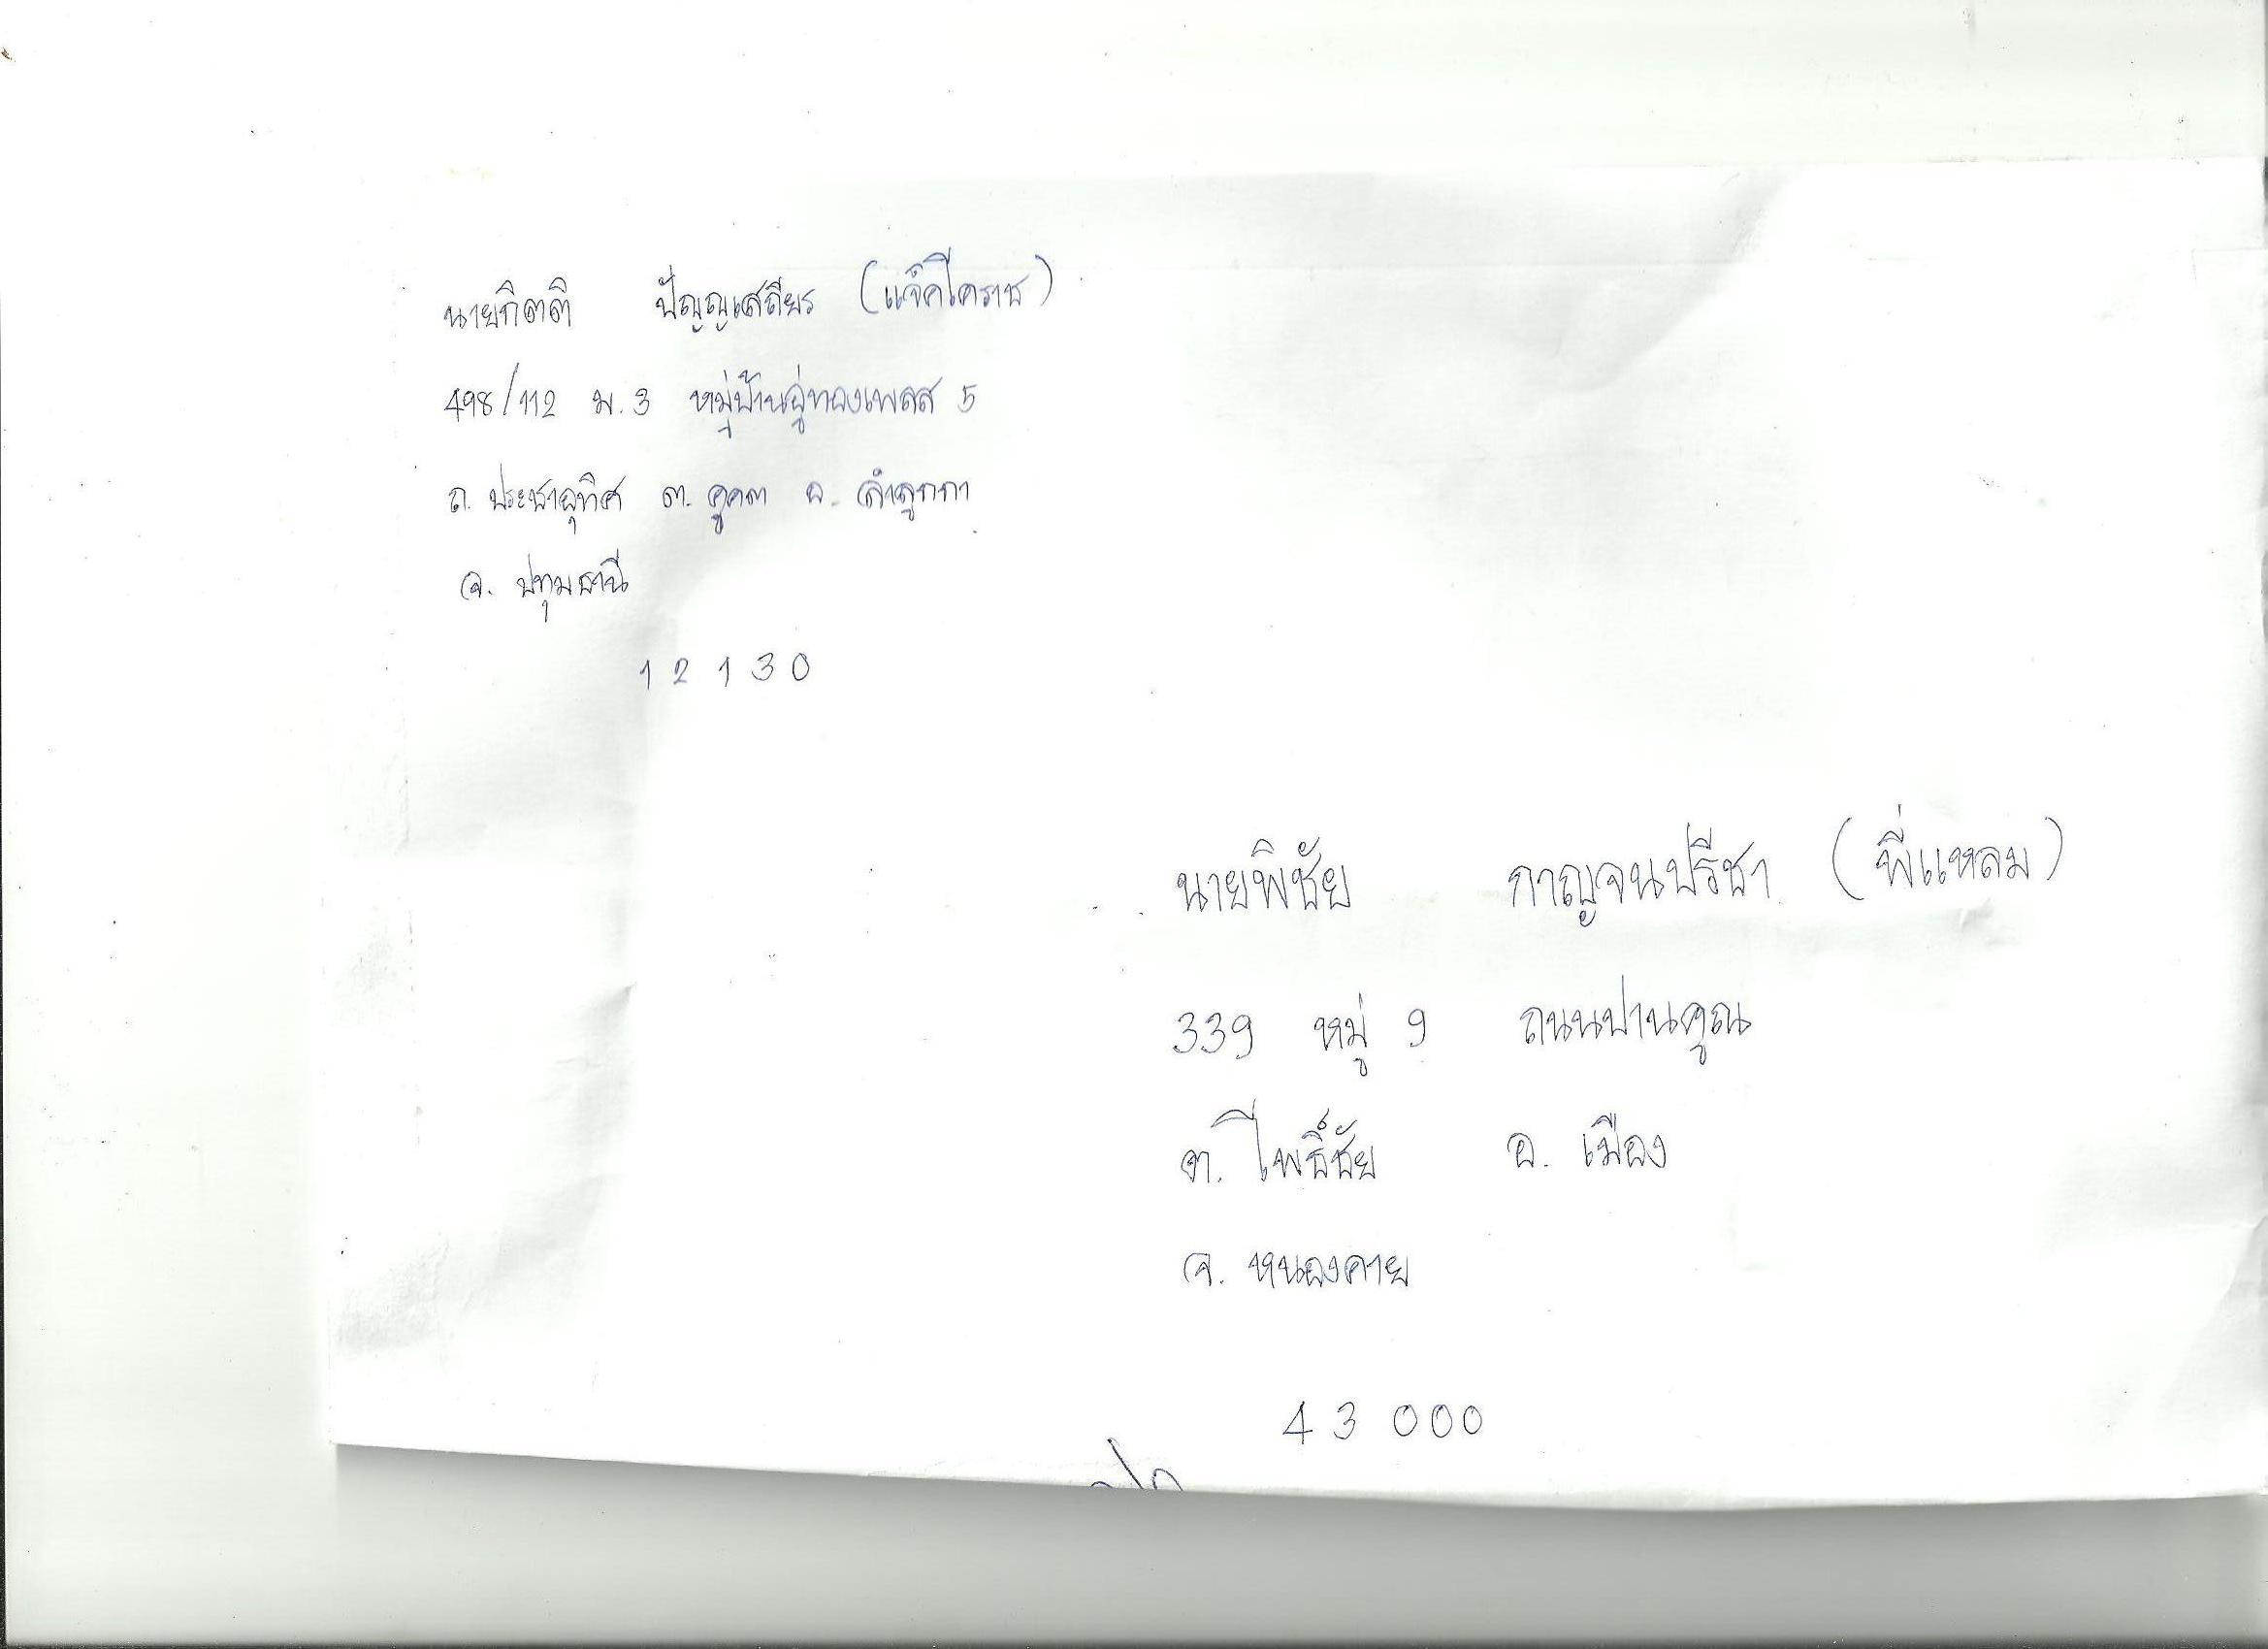 นายกิตติ ปัญญเสถียร (แจ็คโคราช)
498/112 ม.3 หมู่บ้านอู่ทองเพลส 5
ถ. ประชาอุทิศ ต. คูคต อ. ลำลูกกา
จ. ปทุมธานี
12130
นายพิชัย กาญจนปรีชา (พี่แหลม)
339 หมู่ 9 ถนนปานคูณ
ต. โพธิ์ชัย อ. เมือง
จ. หนองคาย
43000